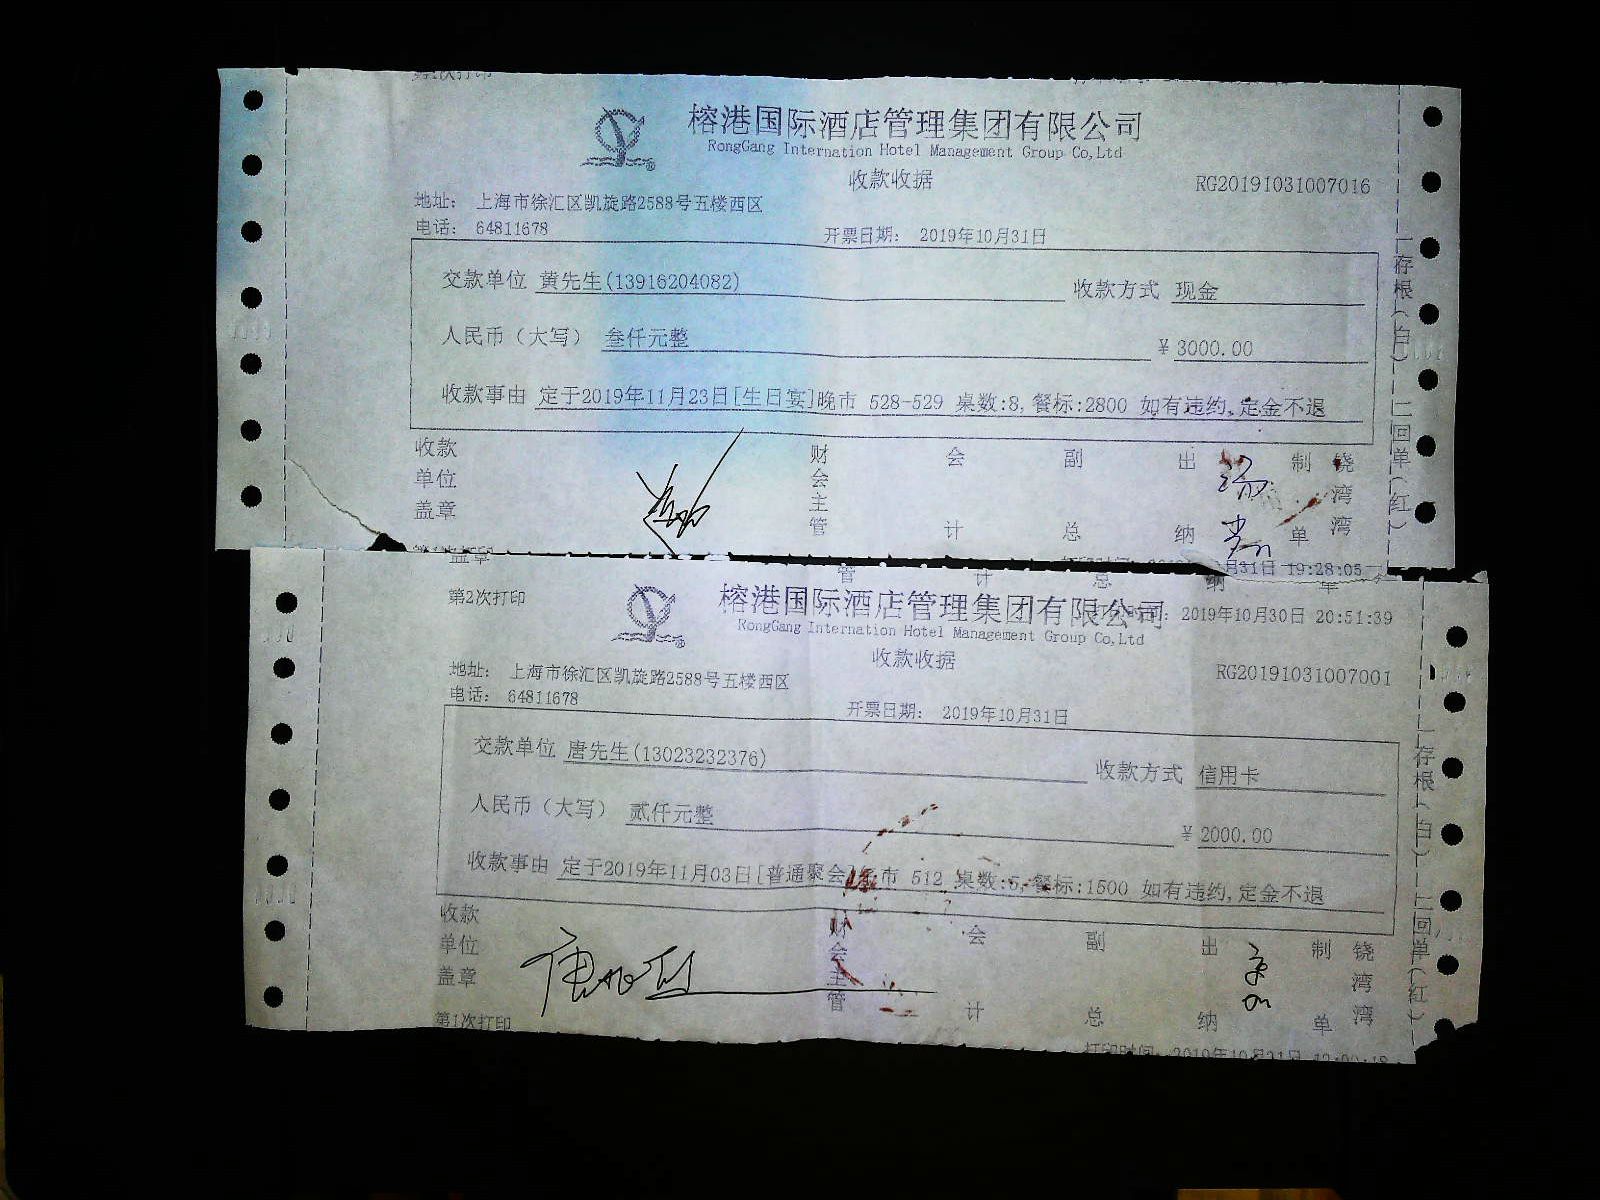 榕港国际酒店管理集团有限公司
RongGang Internation Hotel Management Group Co,Ltd
收款收据
RG20191031007016
地址： 上海市徐汇区凯旋路2588号五楼西区
电话： 64811678
开票日期： 2019年10月31日
交款单位 黄先生(13916204082)
收款方式 现金
人民币（大写） 叁仟元整
¥ 3000.00
收款事由 定于2019年11月23日[生日宴]晚市 528-529 桌数:8,餐标:2800 如有违约,定金不退
一存根(白)二回单(红)
收款单位盖章
财会主管
会计
副总
出纳
制单
饶湾湾
月31日 19:28:05
第2次打印
榕港国际酒店管理集团有限公司
2019年10月30日 20:51:39
RongGang Internation Hotel Management Group Co,Ltd
收款收据
RG20191031007001
地址： 上海市徐汇区凯旋路2588号五楼西区
电话： 64811678
开票日期： 2019年10月31日
交款单位 唐先生(13023232376)
收款方式 信用卡
人民币（大写） 贰仟元整
¥ 2000.00
收款事由 定于2019年11月03日[普通聚会]市 512 桌数:5,餐标:1500 如有违约,定金不退
一存根(白)二回单(红)
收款单位盖章
财会主管
会计
副总
出纳
制单
饶湾湾
第1次打印
打印时间： 2019年10月31日